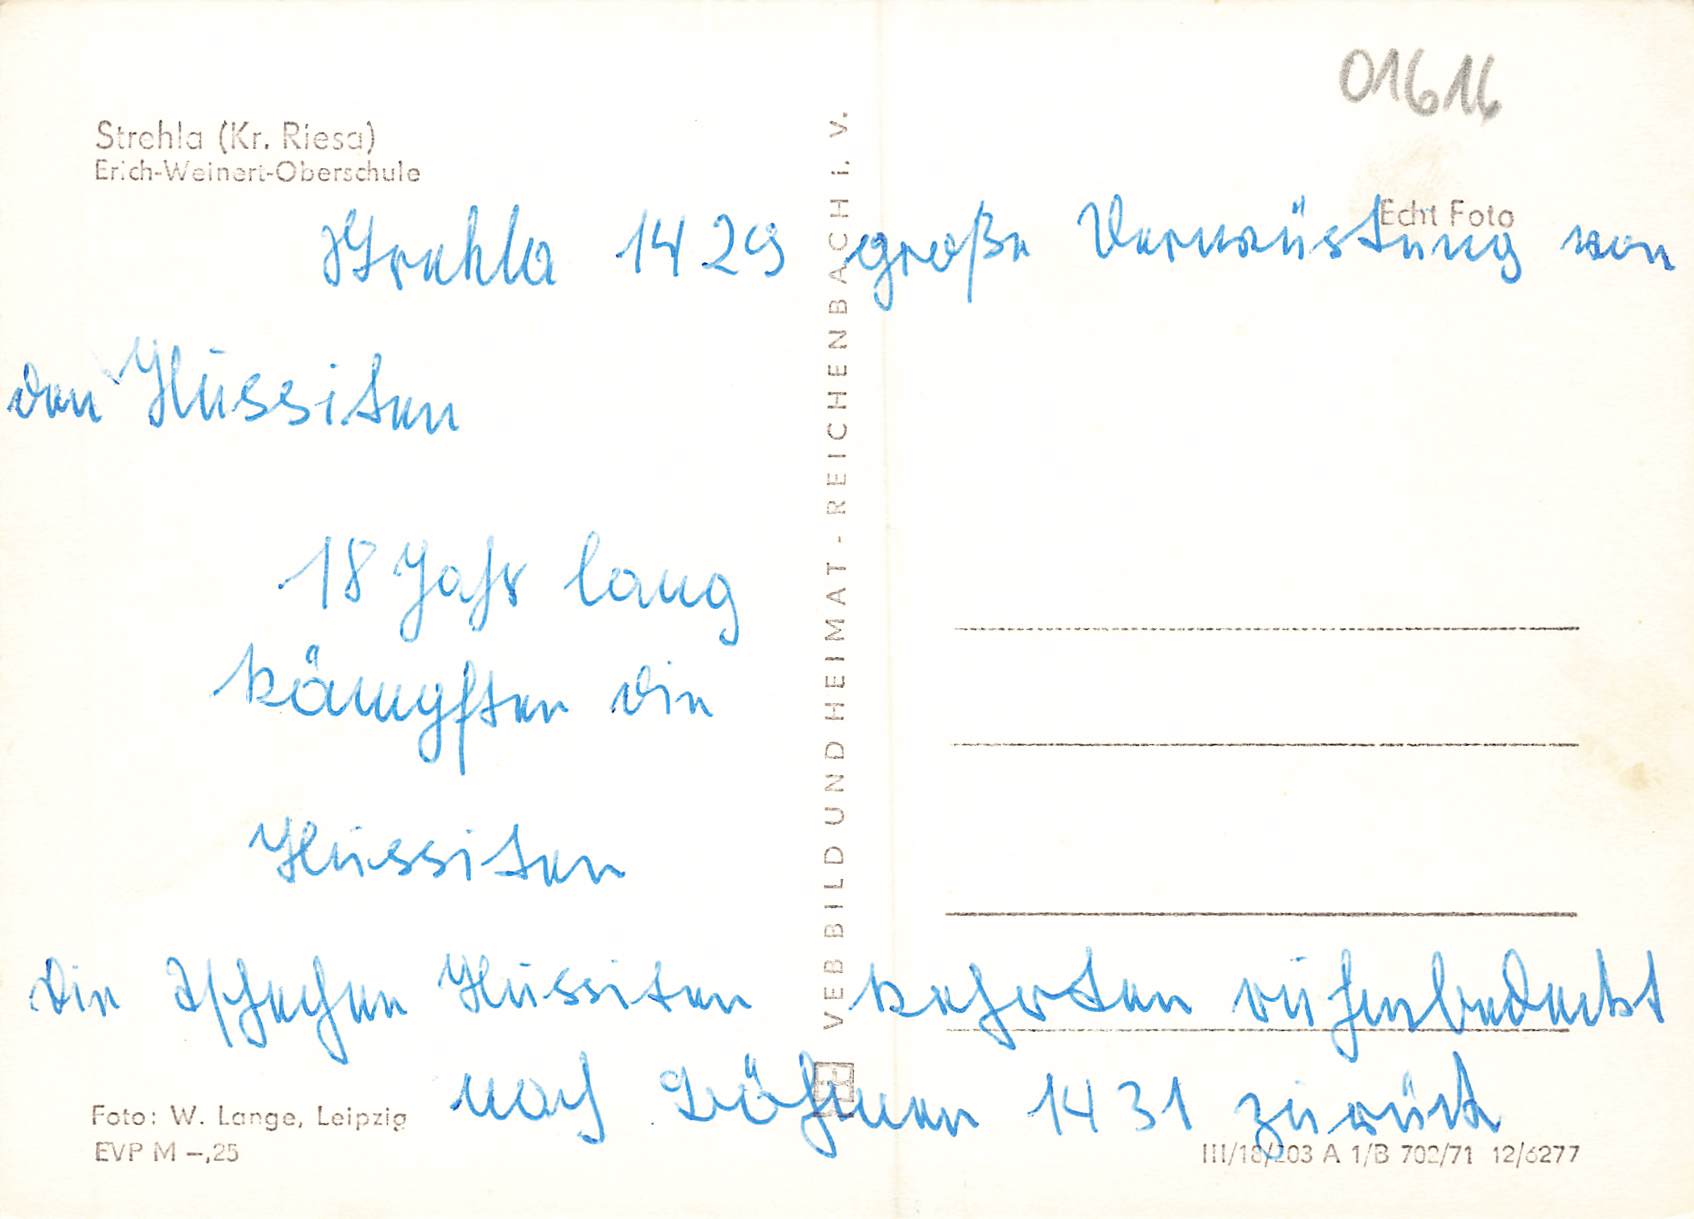 01616
Strehla (Kr. Riesa)
Erich-Weinert-Oberschule
Echt Foto
Strehla 1429 große Verwüstung von
den Hussiten
18 Jahr lang
kämpften die
Hussiten
die Tschechen Hussiten kehrten ruhmbedeckt
nach Böhmen 1431 zurück
VEB BILD UND HEIMAT - REICHENBACH i. V.
Foto: W. Lange, Leipzig
EVP M –,25
III/18/203 A 1/B 702/71 12/6277